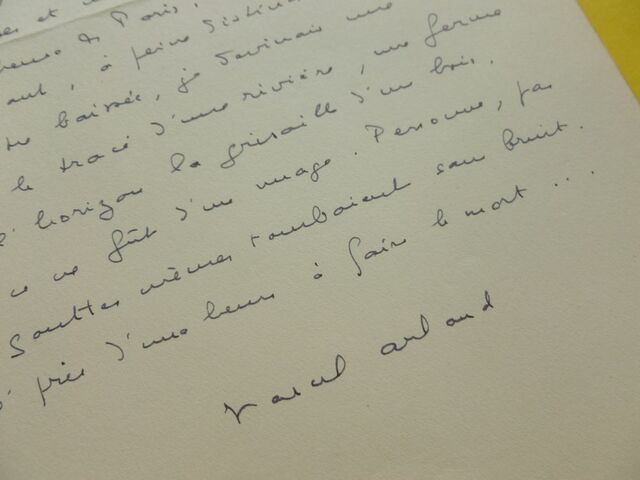 de Paris,
à peine distinc
baissée, je devinais une
le tracé d'une rivière, une ferme
l'horizon la grisaille d'un bois.
ce ne fût d'un nuage. Personne, pas
gouttes mêmes tombaient sans bruit.
près d'une heure à faire le mort...
Marcel Arland